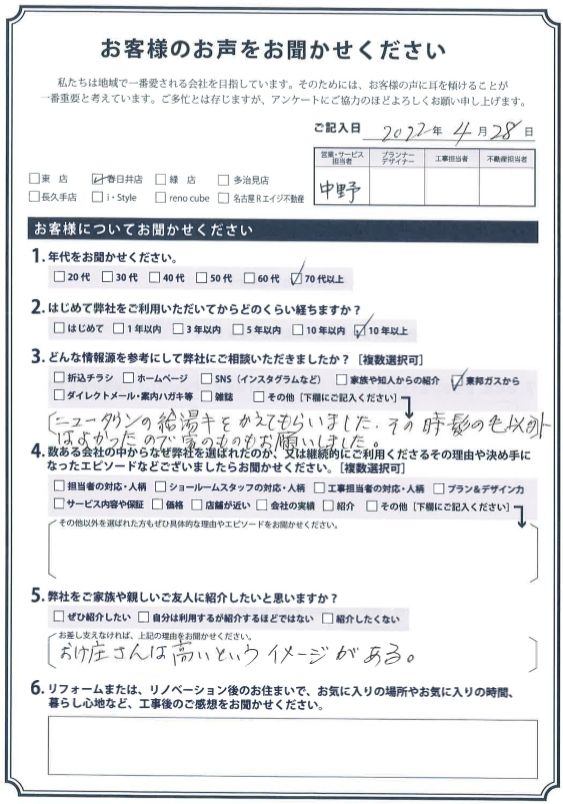 お客様のお声をお聞かせください
私たちは地域で一番愛される会社を目指しています。そのためには、お客様の声に耳を傾けることが
一番重要と考えています。ご多忙とは存じますが、アンケートにご協力のほどよろしくお願い申し上げます。
ご記入日 2022年 4月 28日
営業・サービス担当者 プランナーデザイナー 工事担当者 不動産担当者
中野
□東 店 ☑春日井店 □緑 店 □多治見店
□長久手店 □i・Style □reno cube □名古屋Rエイジ不動産
お客様についてお聞かせください
1. 年代をお聞かせください。
□20代 □30代 □40代 □50代 □60代 ☑70代以上
2. はじめて弊社をご利用いただいてからどのくらい経ちますか？
□はじめて □1年以内 □3年以内 □5年以内 □10年以内 ☑10年以上
3. どんな情報源を参考にして弊社にご相談いただきましたか？［複数選択可］
□折込チラシ □ホームページ □SNS（インスタグラムなど） □家族や知人からの紹介 ☑東邦ガスから
□ダイレクトメール・案内ハガキ等 □雑誌 □その他［下欄にご記入ください］
ニュータウンの給湯キをかえてもらいました。その時髪の毛以外
はよかったので家のものもお願いしました。
4. 数ある会社の中からなぜ弊社を選ばれたのか、又は継続的にご利用くださるその理由や決め手に
なったエピソードなどございましたらお聞かせください。［複数選択可］
□担当者の対応・人柄 □ショールームスタッフの対応・人柄 □工事担当者の対応・人柄 □プラン＆デザイン力
□サービス内容や保証 □価格 □店舗が近い □会社の実績 □紹介 □その他［下欄にご記入ください］
その他以外を選ばれた方もぜひ具体的な理由やエピソードをお聞かせください。
5. 弊社をご家族や親しいご友人に紹介したいと思いますか？
□ぜひ紹介したい □自分は利用するが紹介するほどではない □紹介したくない
お差し支えなければ、上記の理由をお聞かせください。
おけ庄さんは高いというイメージがある。
6. リフォームまたは、リノベーション後のお住まいで、お気に入りの場所やお気に入りの時間、
暮らし心地など、工事後のご感想をお聞かせください。